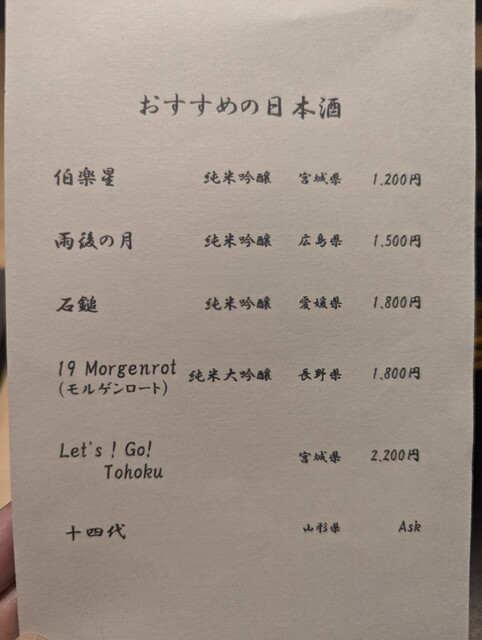 おすすめの日本酒
伯楽星 純米吟醸 宮城県 1,200円
雨後の月 純米吟醸 広島県 1,500円
石鎚 純米吟醸 愛媛県 1,800円
19 Morgenrot 純米大吟醸 長野県 1,800円
(モルゲンロート)
Let's ! Go! 宮城県 2,200円
Tohoku
十四代 山形県 Ask